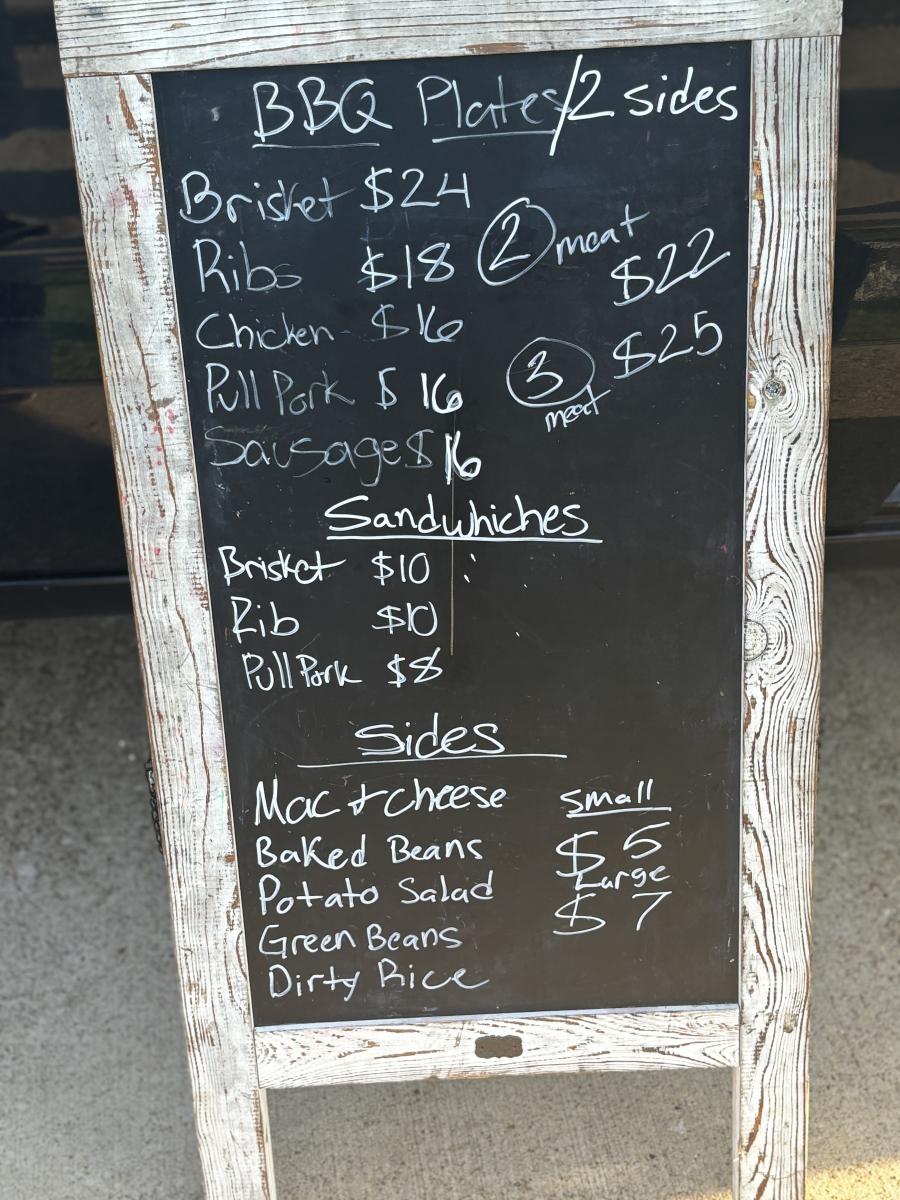 BBQ Plates/2 sides
Brisket $24
Ribs $18
2 meat
$22
Chicken - $16
Pull Pork $ 16
3 meat
$25
Sausage $ 16
Sandwhiches
Brisket $10
Rib $10
Pull Pork $8
Sides
Mac + cheese
Baked Beans
Potato Salad
Green Beans
Dirty Rice
Small
$ 5
Large
$ 7